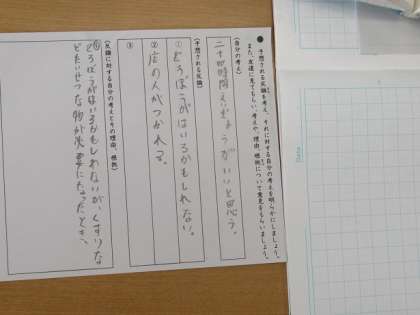 ● 予想される反論を考え、それに対する自分の考えを明らかにしましょう。
また、友達に見てもらい、考えや、理由、根拠について意見をもらいましょう。
(自分の考え)
二十四時間えいぎょうがいいと思う。
(予想される反論)
① どろぼうがはいるかもしれない。
② 店の人がつかれる。
③
(反論に対する自分の考えとその理由、根拠)
① どろぼうがはいるかもしれないが、くすりな
どたいせつな物が必要になったとき、
Date